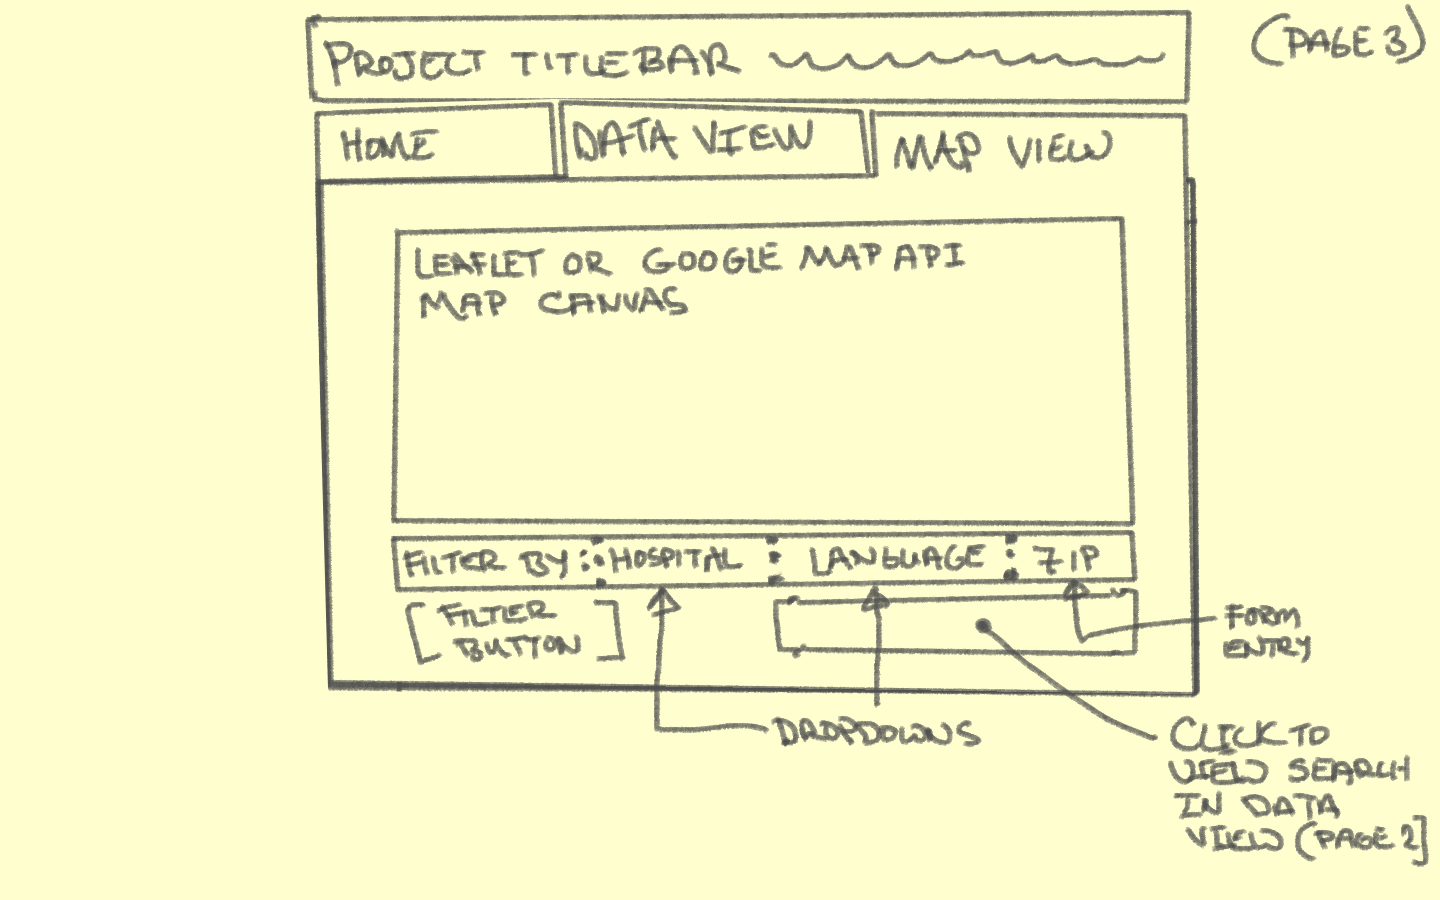 PROJECT TITLEBAR
(PAGE 3)
HOME
DATA VIEW
MAP VIEW
LEAFLET OR GOOGLE MAP API
MAP CANVAS
FILTER BY: HOSPITAL LANGUAGE ZIP
[FILTER
BUTTON]
FORM
ENTRY
DROPDOWNS
CLICK TO
VIEW SEARCH
IN DATA
VIEW (PAGE 2]